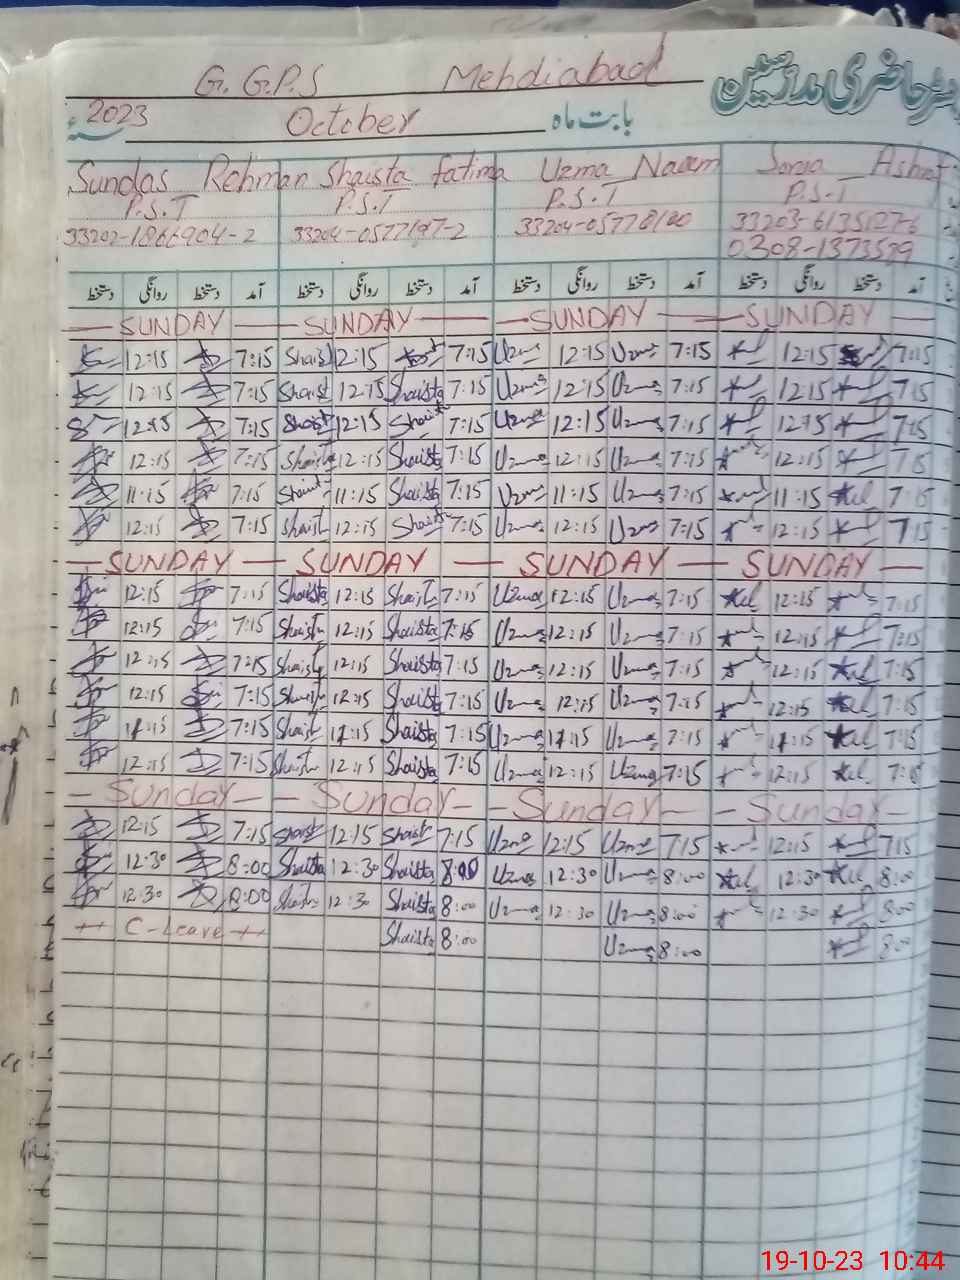 G. G.P.S Mehdiabad حاضری مدرسین
2023 October بابت ماہ
Sundas Rehman Shaista fatima Uzma Naaem Ashraf
P.S.T P.S.T P.S.T P.S.T
33202-1866904-2 33204-0577197-2 33204-05778180 33203-6135127-6
0308-1373579
دستخط روانگی دستخط آمد دستخط روانگی دستخط آمد دستخط روانگی دستخط آمد دستخط روانگی دستخط آمد
SUNDAY SUNDAY SUNDAY SUNDAY
12:15 7:15 Shaist 12:15 7:15 Uzma 12:15 Uzma 7:15 12:15 7:15
12:15 7:15 Shaist 12:15 Shaista 7:15 Uzma 12:15 Uzma 7:15 12:15 7:15
12:15 7:15 Shaist 12:15 Shaist 7:15 Uzma 12:15 Uzma 7:15 12:15 7:15
12:15 7:15 Shaista 12:15 Shaista 7:15 Uzma 12:15 Uzma 7:15 12:15 7:15
11:15 7:15 Shaist 11:15 Shaista 7:15 Uzma 11:15 Uzma 7:15 11:15 7:15
12:15 7:15 Shaist 12:15 Shaist 7:15 Uzma 12:15 Uzma 7:15 12:15 7:15
SUNDAY SUNDAY SUNDAY SUNDAY
12:15 7:15 Shaista 12:15 Shaista 7:15 Uzma 12:15 Uzma 7:15 12:15 7:15
12:15 7:15 Shaista 12:15 Shaista 7:15 Uzma 12:15 Uzma 7:15 12:15 7:15
12:15 7:15 Shaista 12:15 Shaista 7:15 Uzma 12:15 Uzma 7:15 12:15 7:15
12:15 7:15 Shaista 12:15 Shaista 7:15 Uzma 12:15 Uzma 7:15 12:15 7:15
11:15 7:15 Shaist 11:15 Shaista 7:15 Uzma 11:15 Uzma 7:15 11:15 7:15
12:15 7:15 Shaista 12:15 Shaista 7:15 Uzma 12:15 Uzma 7:15 12:15 7:15
Sunday Sunday Sunday Sunday
12:15 7:15 Shaist 12:15 Shaist 7:15 Uzma 12:15 Uzma 7:15 12:15 7:15
12:30 8:00 Shaista 12:30 Shaista 8:00 Uzma 12:30 Uzma 8:00 12:30 8:00
12:30 8:00 Shaista 12:30 Shaista 8:00 Uzma 12:30 Uzma 8:00 12:30 8:00
C-Leave Shaista 8:00 Uzma 8:00 8:00
19-10-23 10:44